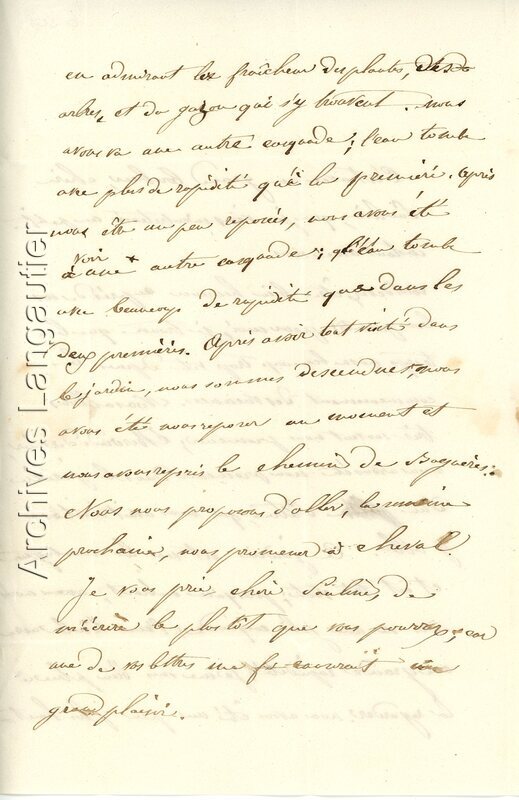 en admirant la fraîcheur des plantes, des
arbres, et du gazon qui s'y trouvent. nous
avons vu une autre casquade; l'eau tombe
avec plus de rapidité qu'à la première. après
nous être un peu reposés, nous avons été
voir
à une autre casquade; l'eau tombe
avec beaucoup de rapidité que dans les
deux premières. Après avoir tout visité dans
le jardin, nous sommes descendues, nous
avons été nous reposer un moment et
nous avons repris le chemin de Bagnères.
Nous nous proposons d'aller, la semaine
prochaine, nous promener à cheval.
Je vous prie, chère Pauline, de
m'écrire le plus tôt que vous pourrez, car
une de vos lettres me
grand plaisir.
Archives Langautier